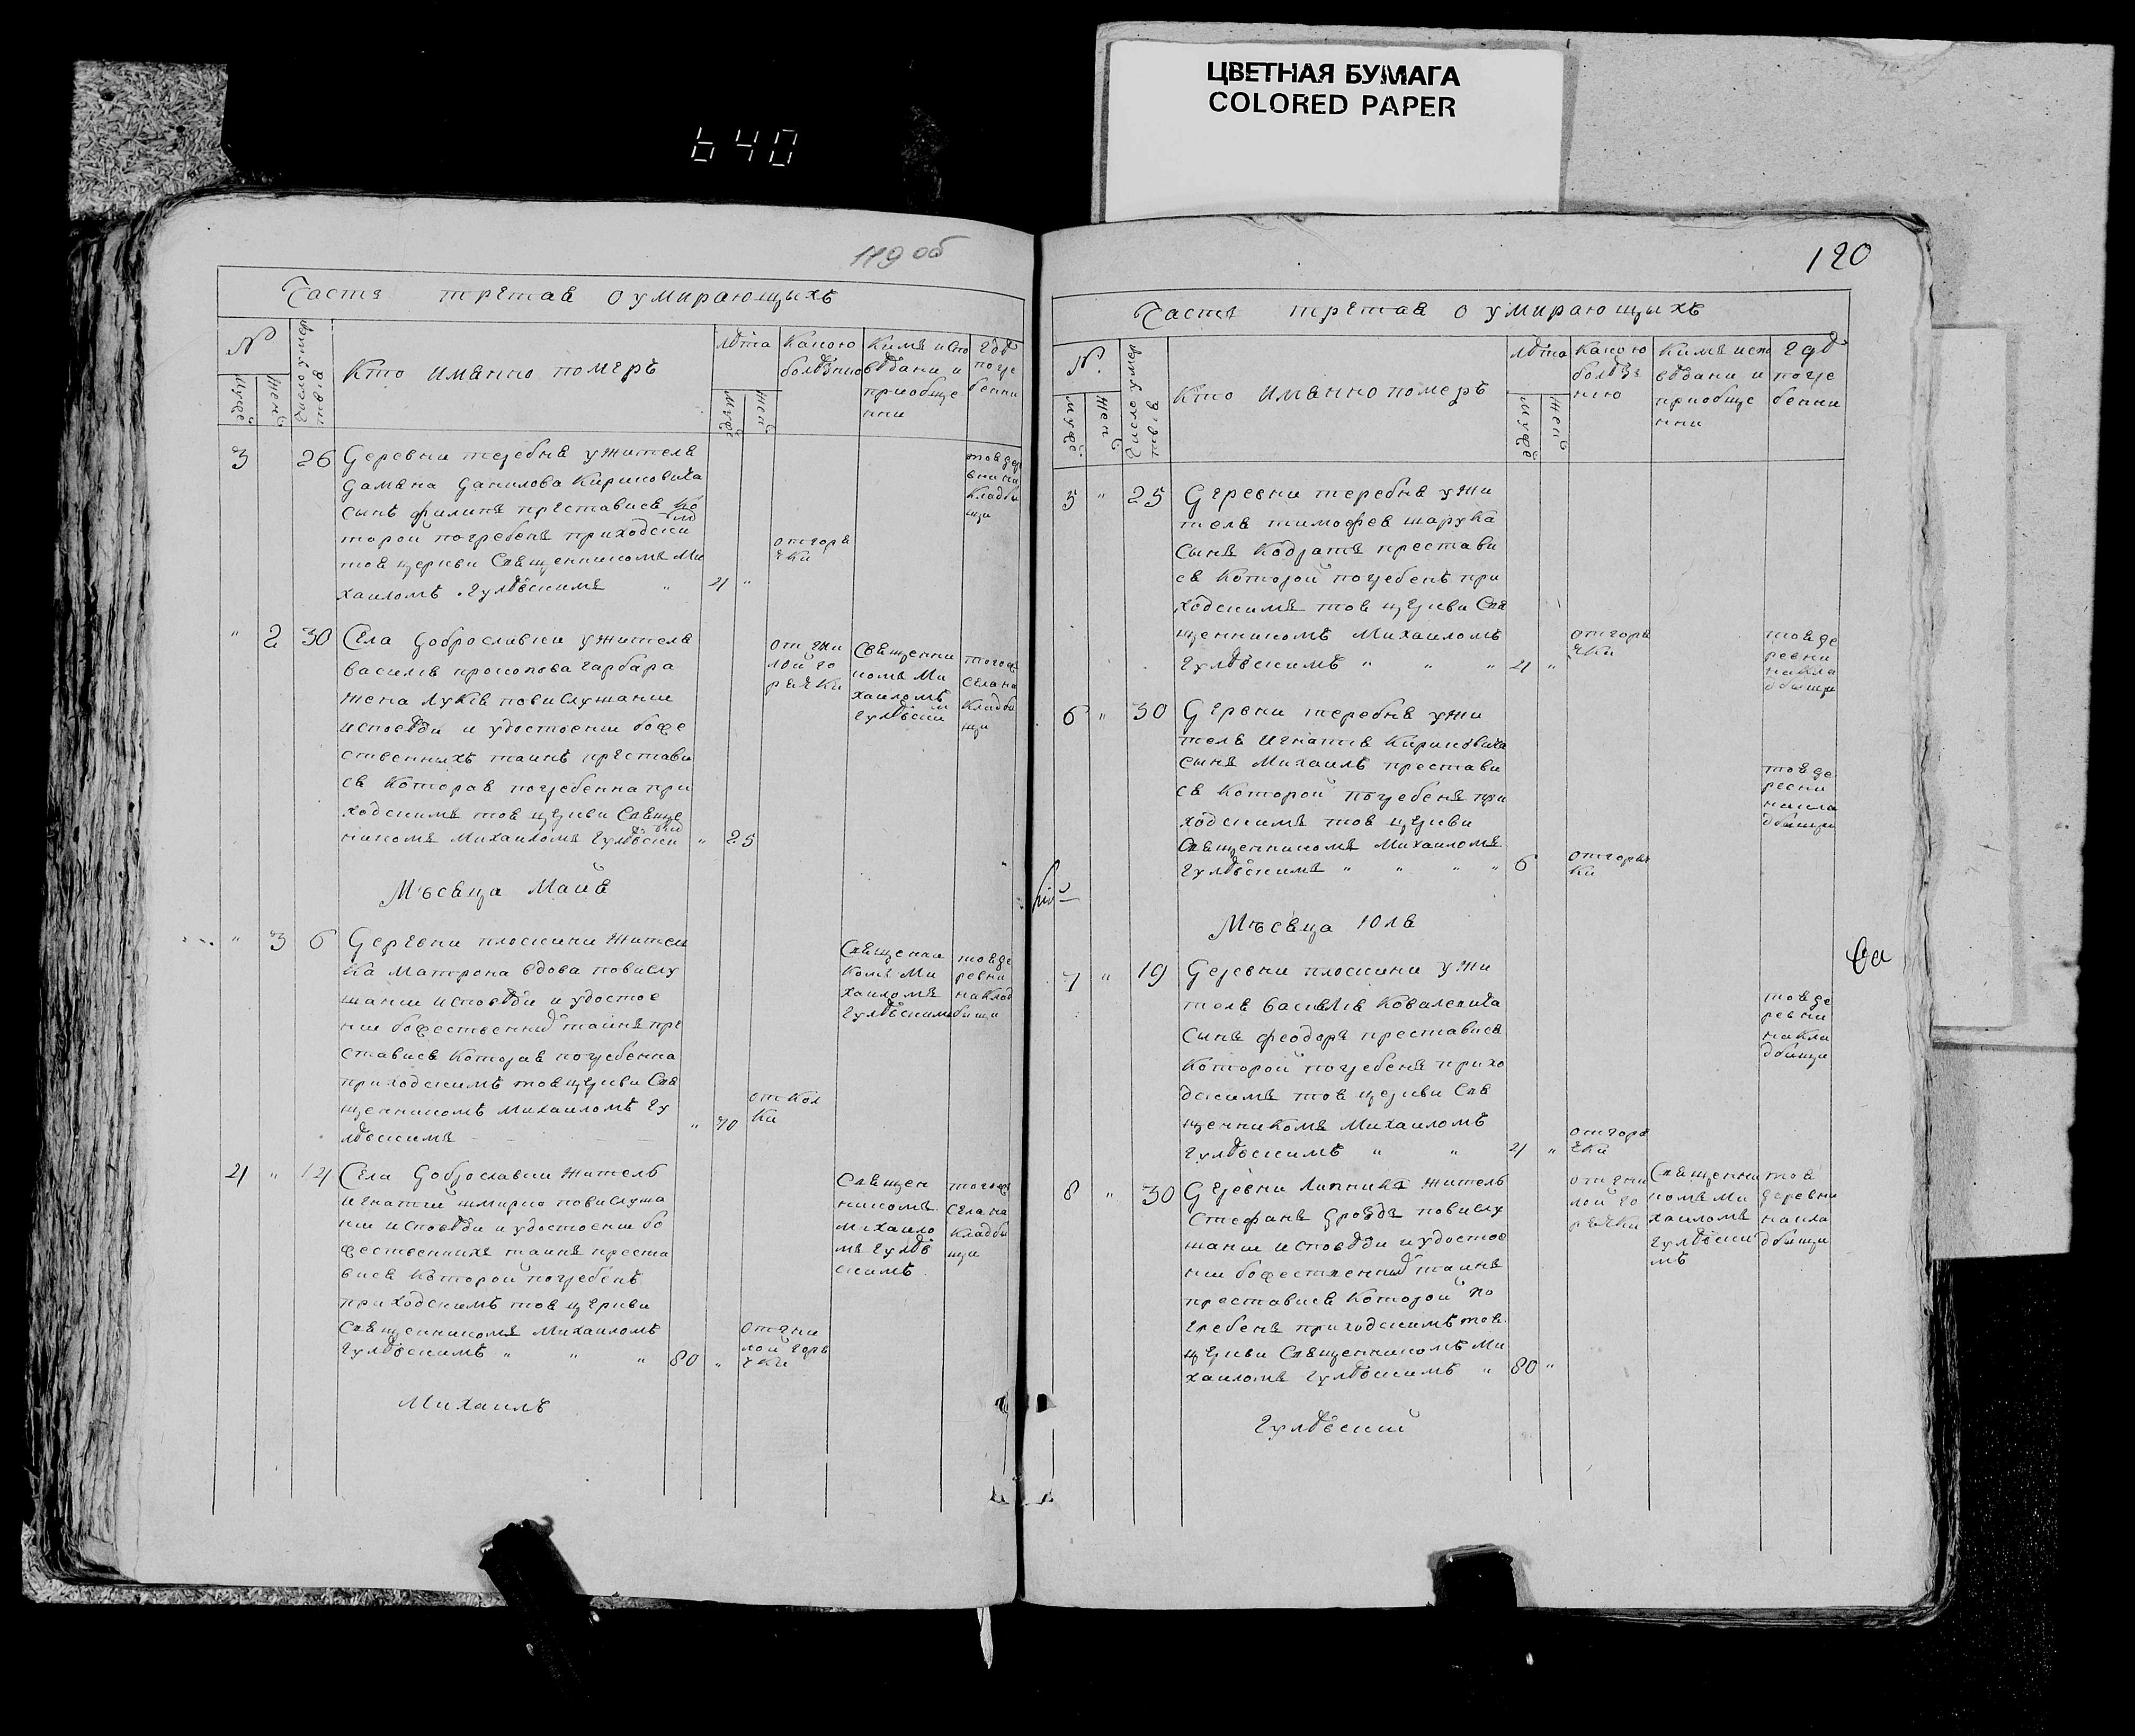 ЦВЕТНАЯ БУМАГА
COLORED PAPER
640
119 об
Часть третая о умирающыхъ
№
Число умер
твія
Кто имянно померъ
лѣта
Какою
болѣзнию
Кимъ испо
вѣдани и
приобще
нни
гдѣ
погре
бенни
муж
жен
муж
жен
3 26 Деревни теребня ужителя
дамяна данилова Кириковича
сынъ филипъ преставися ко
торой погребенъ приходски
мъ
тоя церкви Священникомъ Ми
хаиломъ Гулѣвскимъ " 4 "
отгоря
чки
тоя дер
вни на
Кладби
щи
" 2 30 Села Доброславки ужителя
василія прокопова гарбара
жена Лукія повислушании
исповѣди и удостоении боже
ственныхъ таинъ престави
ся Которая погребенна при
ходскимъ тоя церкви Свяще
никомъ Михаиломъ Гулѣвски " 25
от гни
лой го
рячки
Священни
комъ Ми
хаиломъ
Гулѣвски
м
тогож
села на
кладби
щи
Мѣсяца Маия
" 3 6 Деревни плоскини Жител
ка Матрона вдова повислу
шании исповѣди и удостое
нии божественных таинъ пре
ставися Которая погребенна
приходскимъ тоя церкви Свя
щенникомъ Михаиломъ Гу
лѣвскимъ " 70
от кол
ки
Священни
комъ Ми
хаиломъ
Гулѣвским
тоя де
ревни
на Клад
бищи
4 " 14 Села Доброславки Житель
игнатий шмирко повислуша
нии исповѣди и удостоении бо
жественнихъ таинъ преста
вися Которой погребенъ
приходскимъ тоя церкви
Священникомъ Михаиломъ
Гулѣвскимъ " " " 80 "
от гни
лой горя
чки
Священ
никомъ
Михаило
мъ Гулѣв
скимъ
тогож
села на
кладби
щи
Михаилъ
120
Часть третая о умирающыхъ
№.
Число умер
твія
Кто имянно померъ
лѣта
Какою
болѣз
нию
Кимъ испо
вѣдани и
приобще
нни
гдѣ
погре
бенни
муж
жен
муж
жен
5 " 25 Деревни теребня ужи
теля тимофея шарука
сынъ Кодратъ престави
ся Которой погребенъ при
ходскимъ тоя церкви Свя
щенникомъ Михаиломъ
Гулѣвскимъ " " " 4 "
отгоря
чки
тоя де
ревни
на кла
дбищи
6 " 30 Деревни теребня ужи
теля Игнатия Кириковича
сынъ Михаилъ престави
ся Которой погребенъ при
ходскимъ тоя церкви
Священникомъ Михаиломъ
Гулѣвскимъ " " " " 6
отгоряч
ки
тоя де
ревни
на кла
дбищи
Мѣсяца Юля
7 " 19 Деревни плоскини ужи
теля василия Ковалевича
сынъ феодоръ преставися
Которой погребенъ прихо
дскимъ тоя церкви Свя
щенникомъ Михаиломъ
Гулѣвскимъ " " 4 "
отгоря
чки
тоя де
ревни
на кла
дбищи
8 " 30 Деревни Липники житель
Стефанъ Дроздъ повислу
шании исповѣди и удостое
нии божественных таинъ
преставися Которой по
гребенъ приходскимъ тоя
церкви Священникомъ Ми
хаиломъ Гулѣвскимъ " 80 "
от гни
лой го
рячки
Священни
комъ Ми
хаиломъ
Гулѣвски
мъ
тоя
деревни
на кла
дбищи
Гулѣвский